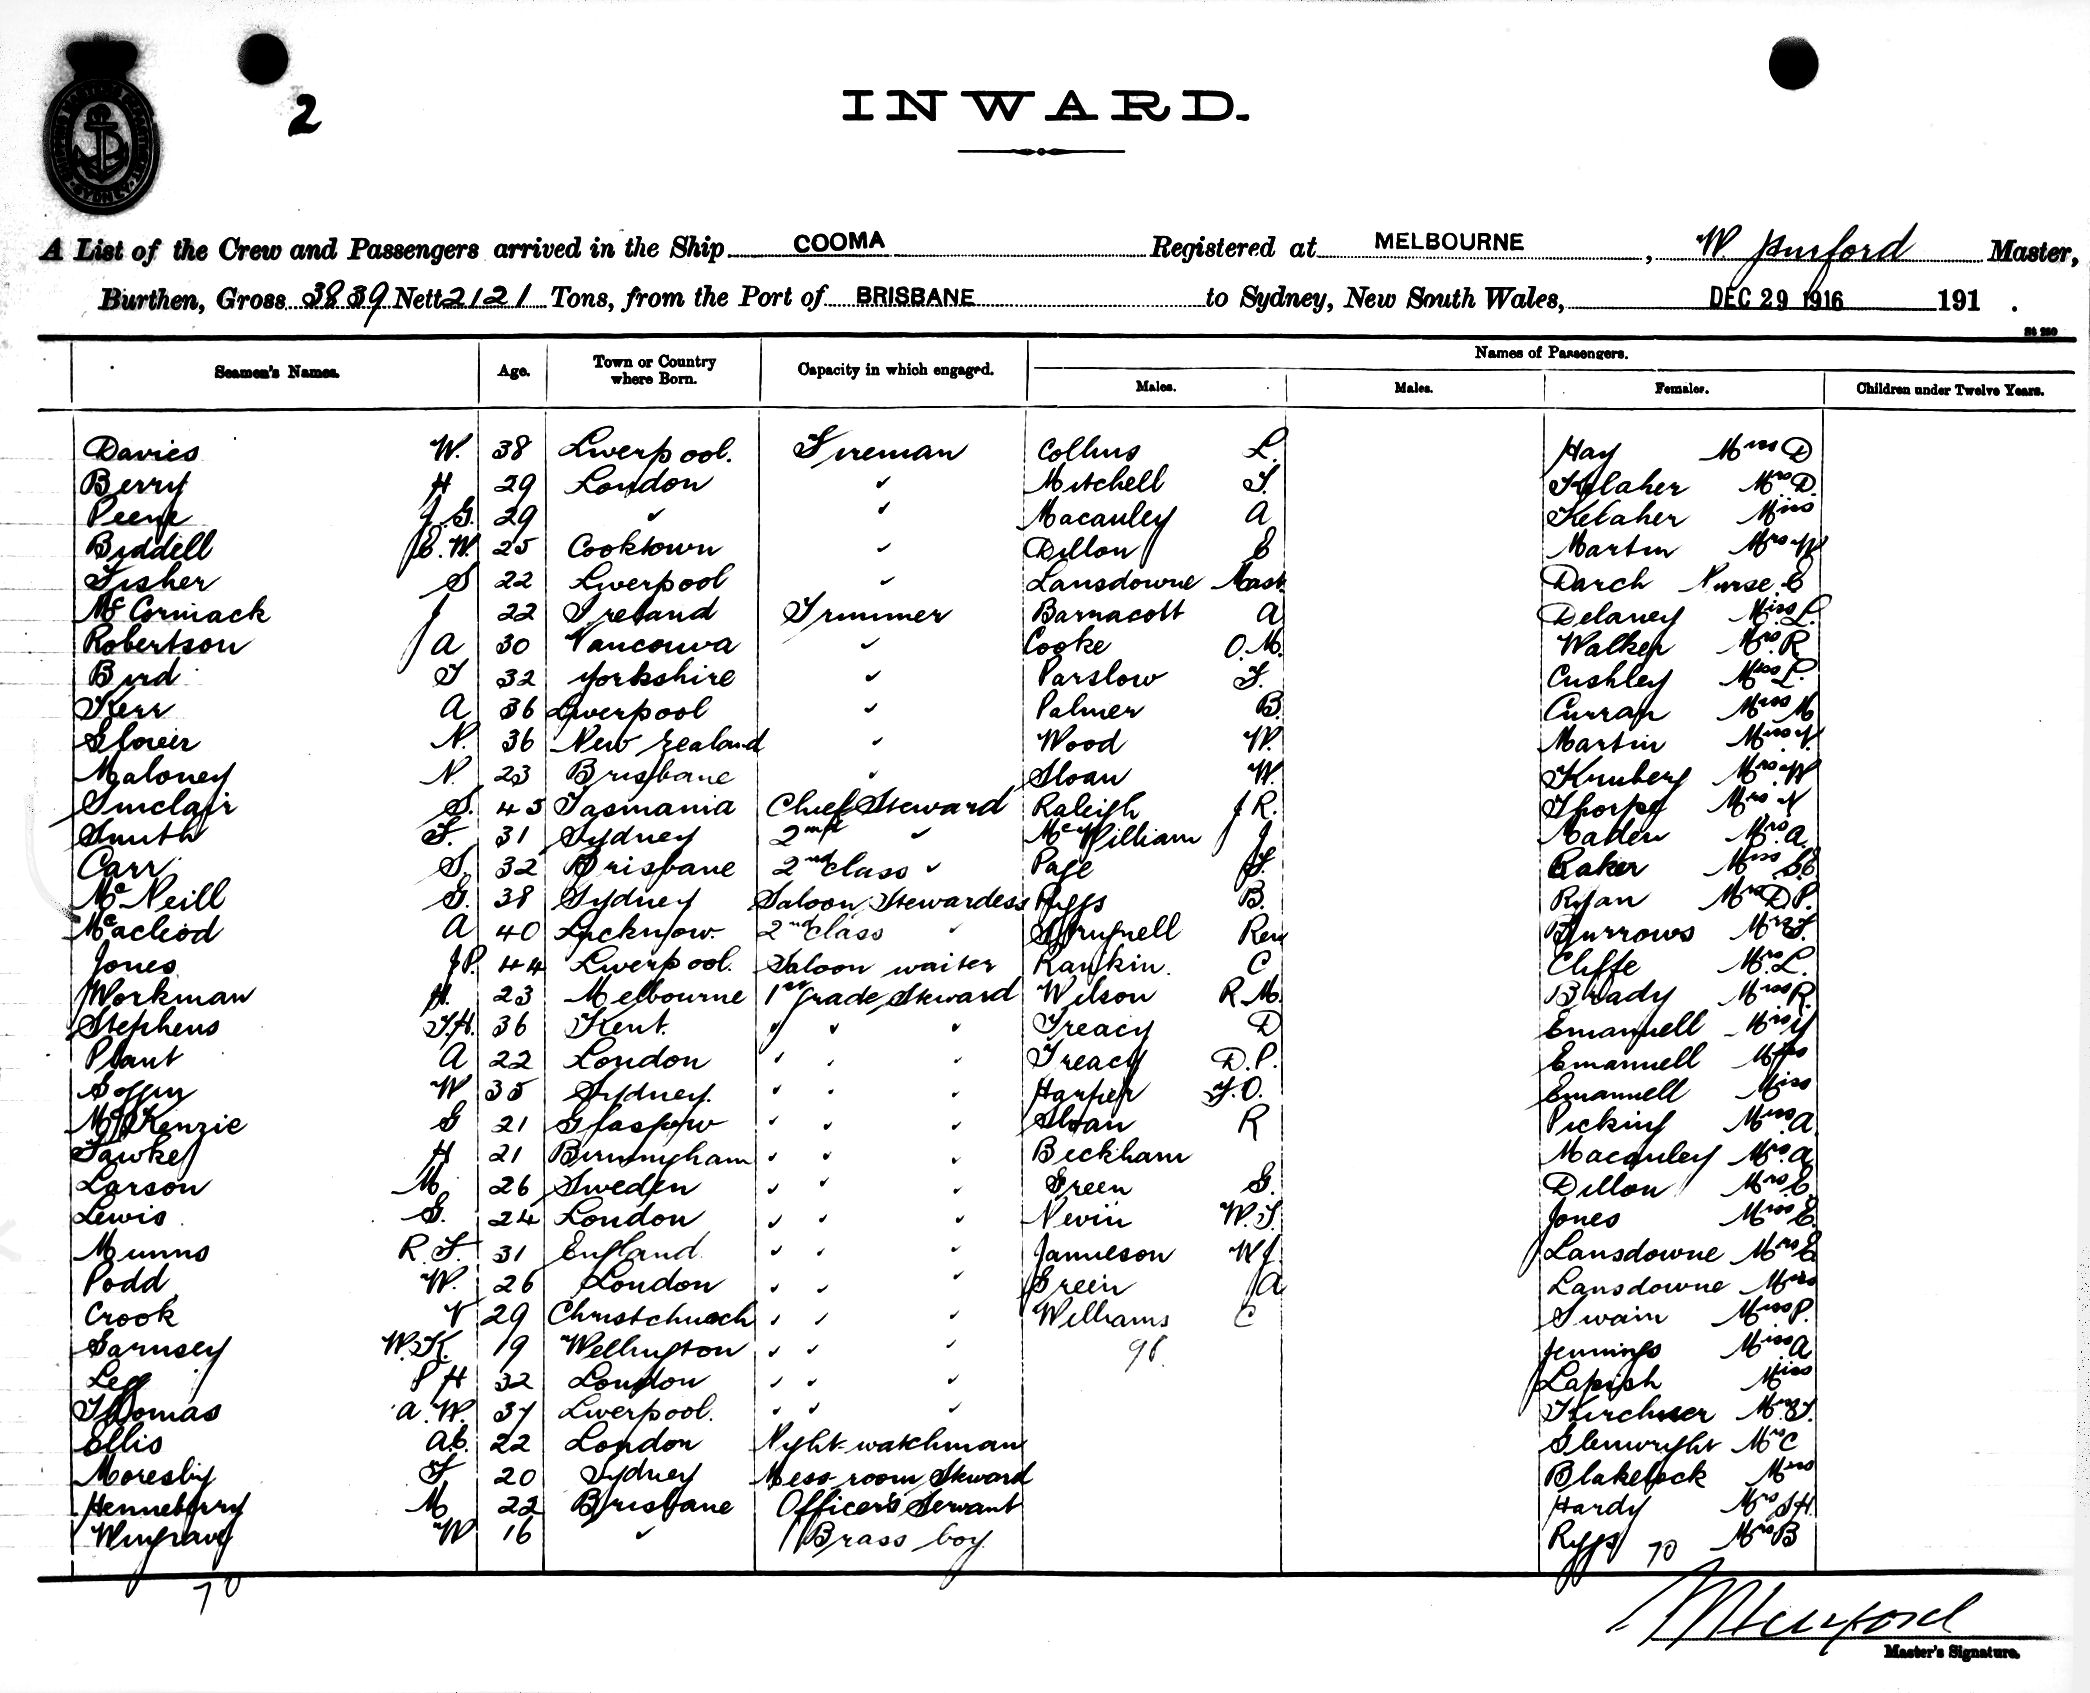 2
INWARD.
A List of the Crew and Passengers arrived in the Ship COOMA Registered at MELBOURNE, W. Hurford Master,
Burthen, Gross 3839 Nett 2121 Tons, from the Port of BRISBANE to Sydney, New South Wales, DEC 29 1916 191 .
St 260
Names of Passengers.
Seamen's Names. Age. Town or Country where Born. Capacity in which engaged. Males. Males. Females. Children under Twelve Years.
Davies W. 38 Liverpool. Fireman Collins L. Hay Miss D
Berry H 29 London " Mitchell T. Kelaher Mrs D.
Peene J.G. 29 " " Macauley A Kelaher Miss
Biddell E.W. 25 Cooktown " Dillon E Martin Mrs W
Fisher S 22 Liverpool " Lansdowne Mast Darch Nurse E
McCormack J 22 Ireland Trimmer Barnacott A Delaney Miss L.
Robertson A 30 Vancouva " Cooke O.M. Walker Mrs. R
Bird T 32 Yorkshire " Parslow F. Cushley Miss L.
Kerr A 36 Liverpool " Palmer B. Curran Miss M
Glover N. 36 New Zealand " Wood W. Martin Miss
Maloney N. 23 Brisbane " Sloan W. Mrs W
Sinclair S. 45 Tasmania Chief Steward Raleigh J R. Thorpe Mrs N
Smith F. 31 Sydney 2nd " McWilliam J Mrs. A.
Carr S. 32 Brisbane 2nd class " Page Baker Miss
McNeill G. 38 Sydney Saloon Stewardess Riggs B. Ryan Mrs D P.
Macleod A 40 Lucknow. 2nd class " Rev Burrows
Jones J P. 44 Liverpool. Saloon waiter Rankin. C Cliffe Mrs. L.
Workman H. 23 Melbourne 1st grade Steward Wilson R.M. Brady Miss R.
Stephens T.H. 36 Kent. " " " Treacy D Emanuell
Plant A 22 London " " " Treacy D.P. Emanuell Miss
W 35 Sydney. " " " Harper F.O. Emanuell Miss
McKenzie G 21 Glasgow " " " Sloan R Picking Miss. A.
Fawke H 21 Birmingham " " " Beckham Macauley Mrs. A
Larson M 26 Sweden " " " Green G. Dillon Mrs. E
Lewis G. 24 London " " " Nevin W.T. Jones Miss E.
Munns R.F. 31 England. " " " Jamieson W J. Lansdowne Mrs E
Podd W. 26 London " " " Green A Lansdowne Miss
Crook V 29 Christchurch " " " Williams C Swain Miss P.
Garnsey W.K. 19 Wellington " " " 96. Jennings Miss A
P H 32 London " " " Miss
Thomas A.W. 37 Liverpool. " " " Kirchner
Ellis A.E. 22 London Night watchman Glenwright Mrs C
Moresby F 20 Sydney Mess room Steward Blakelock Miss
Henneberry M 22 Brisbane Officer's Servant Hardy
Wingrave W 16 " Brass boy. Riggs Mrs B
70 70
W Hurford
Master's Signature.